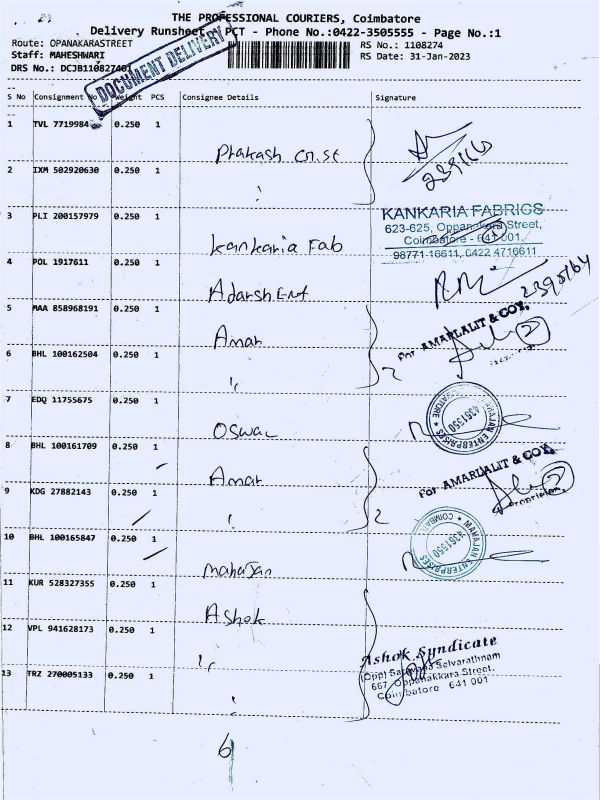 THE PROFESSIONAL COURIERS, Coimbatore
Delivery Runsheet PCT - Phone No.:0422-3505555 - Page No.:1
Route: OPANAKARASTREET
RS No.: 1108274
Staff: MAHESHWARI
RS Date: 31-Jan-2023
DRS No.: DCJB110827401
DOCUMENT DELIVERY
S No Consignment No Weight PCS Consignee Details Signature
1 TVL 7719984 0.250 1
Prakash
239116
2 IXM 502920630 0.250 1
KANKARIA FABRICS
623-625, Oppanakara Street,
Coimbatore - 641 001.
98771 16611, 0422 4716611
3 PLI 200157979 0.250 1
Kankaria Fab
4 POL 1917611 0.250 1
Adarsh Ent
5 MAA 858968191 0.250 1
Amar
For AMARLALIT & COY,
2
6 BHL 100162504 0.250 1
2
7 EDQ 11755675 0.250 1
Oswal
MAHAJAN ENTERPRISES
4361550
8 BHL 100161709 0.250 1
Amar
For AMARLALIT & COY,
2
Proprietor.
9 KDG 27882143 0.250 1
2
10 BHL 100165847 0.250 1
Mahajan
MAHAJAN ENTERPRISES
4361550
11 KUR 528327355 0.250 1
Ashok
12 VPL 941628173 0.250 1
Ashok Syndicate
(Opp) Saravana Selvarathnam
667, Oppanakkara Street,
Coimbatore 641 001
13 TRZ 270005133 0.250 1
6